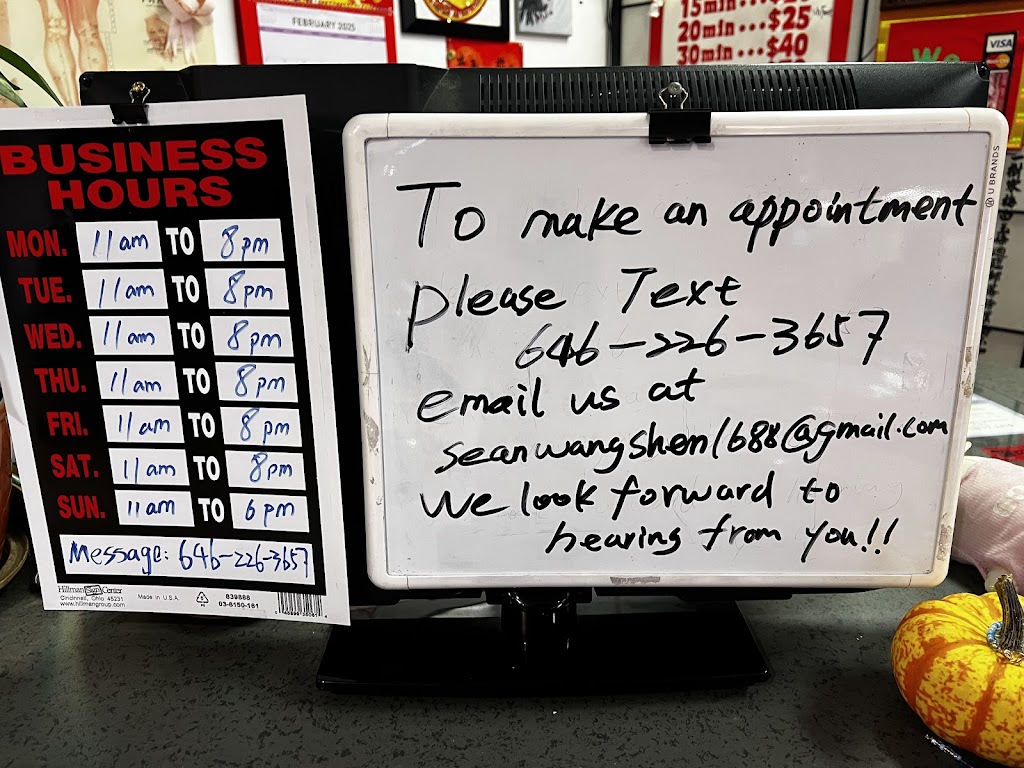 FEBRUARY 2025
15min
20min...$25
30min...$40
VISA
We
BUSINESS
HOURS
MON. 11am TO 8pm
TUE. 11am TO 8pm
WED. 11am TO 8pm
THU. 11am TO 8pm
FRI. 11am TO 8pm
SAT. 11am TO 8pm
SUN. 11am TO 6pm
Message: 646-226-3657
Hillman Sign Center
Cincinnati, Ohio 45231
www.hillmangroup.com
Made in U.S.A.
839888
03-6150-161
U BRANDS
To make an appointment
please Text
646-226-3657
email us at
seanwangshen1688@gmail.com
we look forward to
hearing from you!!